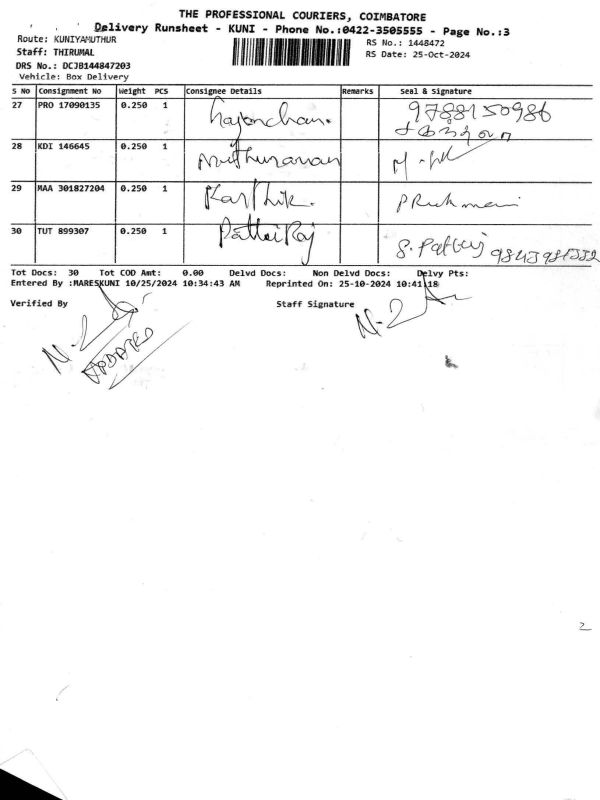 THE PROFESSIONAL COURIERS, COIMBATORE
Delivery Runsheet - KUNI - Phone No.:0422-3505555 - Page No.:3
Route: KUNIYAMUTHUR
RS No.: 1448472
Staff: THIRUMAL
RS Date: 25-Oct-2024
DRS No.: DCJB144847203
Vehicle: Box Delivery
S No Consignment No Weight PCS Consignee Details Remarks Seal & Signature
27 PRO 17090135 0.250 1 9788150986
28 KDI 146645 0.250 1
29 MAA 301827204 0.250 1 Karthik.
30 TUT 899307 0.250 1 PattaiRaj
Tot Docs: 30 Tot COD Amt: 0.00 Delvd Docs: Non Delvd Docs: Delvy Pts:
Entered By :MARESKUNI 10/25/2024 10:34:43 AM Reprinted On: 25-10-2024 10:41:18
Verified By Staff Signature
UPDATED